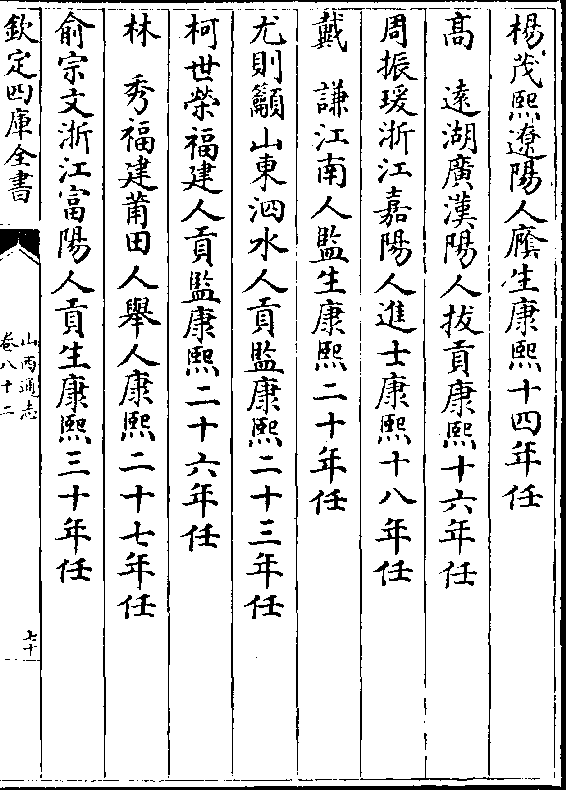 楊茂熙遼陽人廕生康熙十四年任
高　遠湖廣漢陽人拔貢康熙十六年任
周振瑗浙江嘉陽人進士康熙十八年任
戴　謙江南人監生康熙二十年任
尤則籲山東泗水人貢監康熙二十三年任
柯世榮福建人貢監康熙二十六年任
林　秀福建莆田人舉人康熙二十七年任
俞宗文浙江富陽人貢生康熙三十年任
欽定四庫全書
山西通志
卷八十二
七十